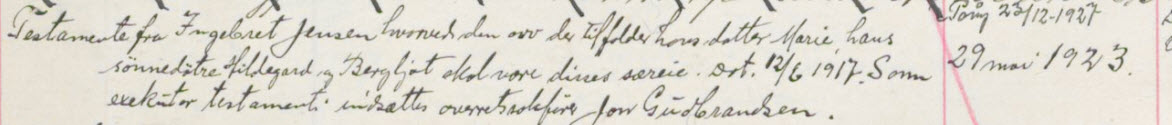 Testamente fra Ingebret Jensen hvorved den arv der tilfalder hans datter Marie, hans
sønnedøtre Hildegard og Bergljot skal være disses særeie. Dat. 12/6 1917. Som
exekutor testamenti indsættes overretssakfører Jon Gudbrandsen.
23/12-1927
29 mai 1923.